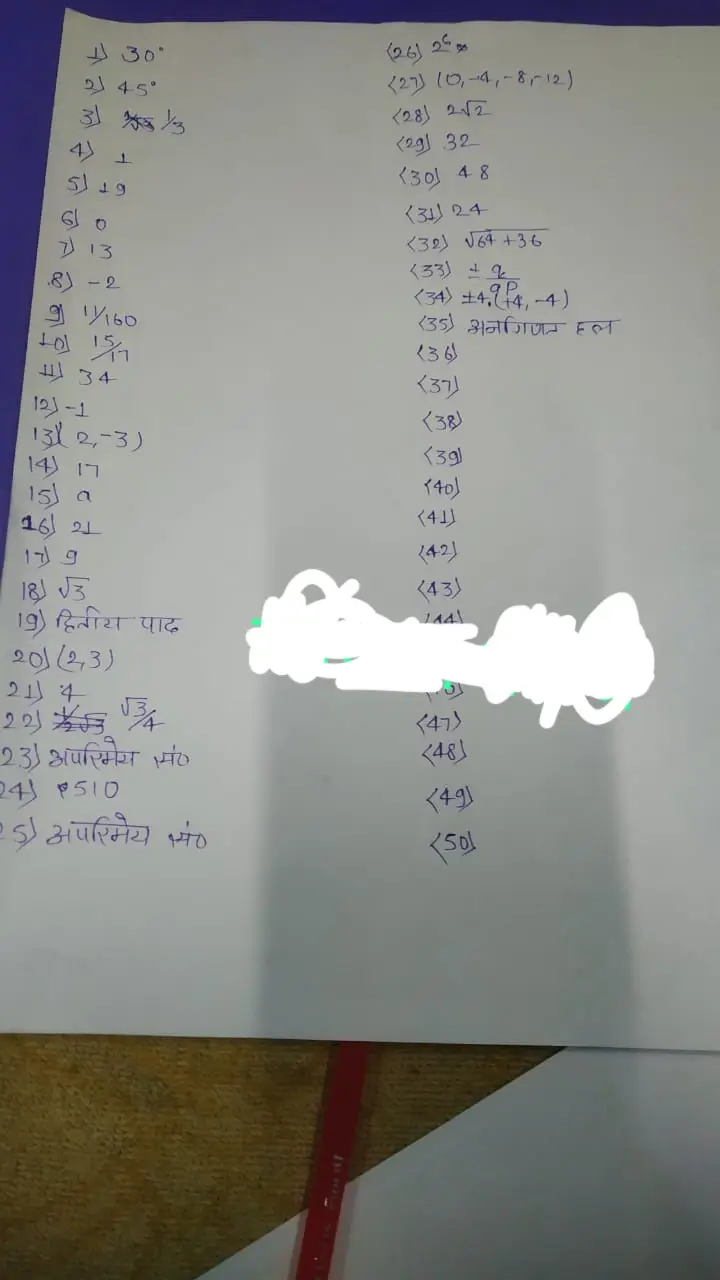 1) 30°
2) 45°
3) 1/3
4) 1
5) 19
6) 0
7) 13
8) -2
9) 11/160
10) 15/17
11) 34
12) -1
13) (2,-3)
14) 17
15) a
16) 21
17) 9
18) √3
19) द्वितीय पाद
20) (2,3)
21) 4
22) √3/4
23) अपरिमेय सं०
24) 510
25) अपरिमेय सं०
(26) 2⁶
(27) (0,-4,-8,-12)
(28) 2√2
(29) 32
(30) 48
(31) 24
(32) √64+36
(33) ±
(34) ±4, (+4,-4)
(35) अनगिनत हल
(36)
(37)
(38)
(39)
(40)
(41)
(42)
(43)
(44)
(47)
(48)
(49)
(50)